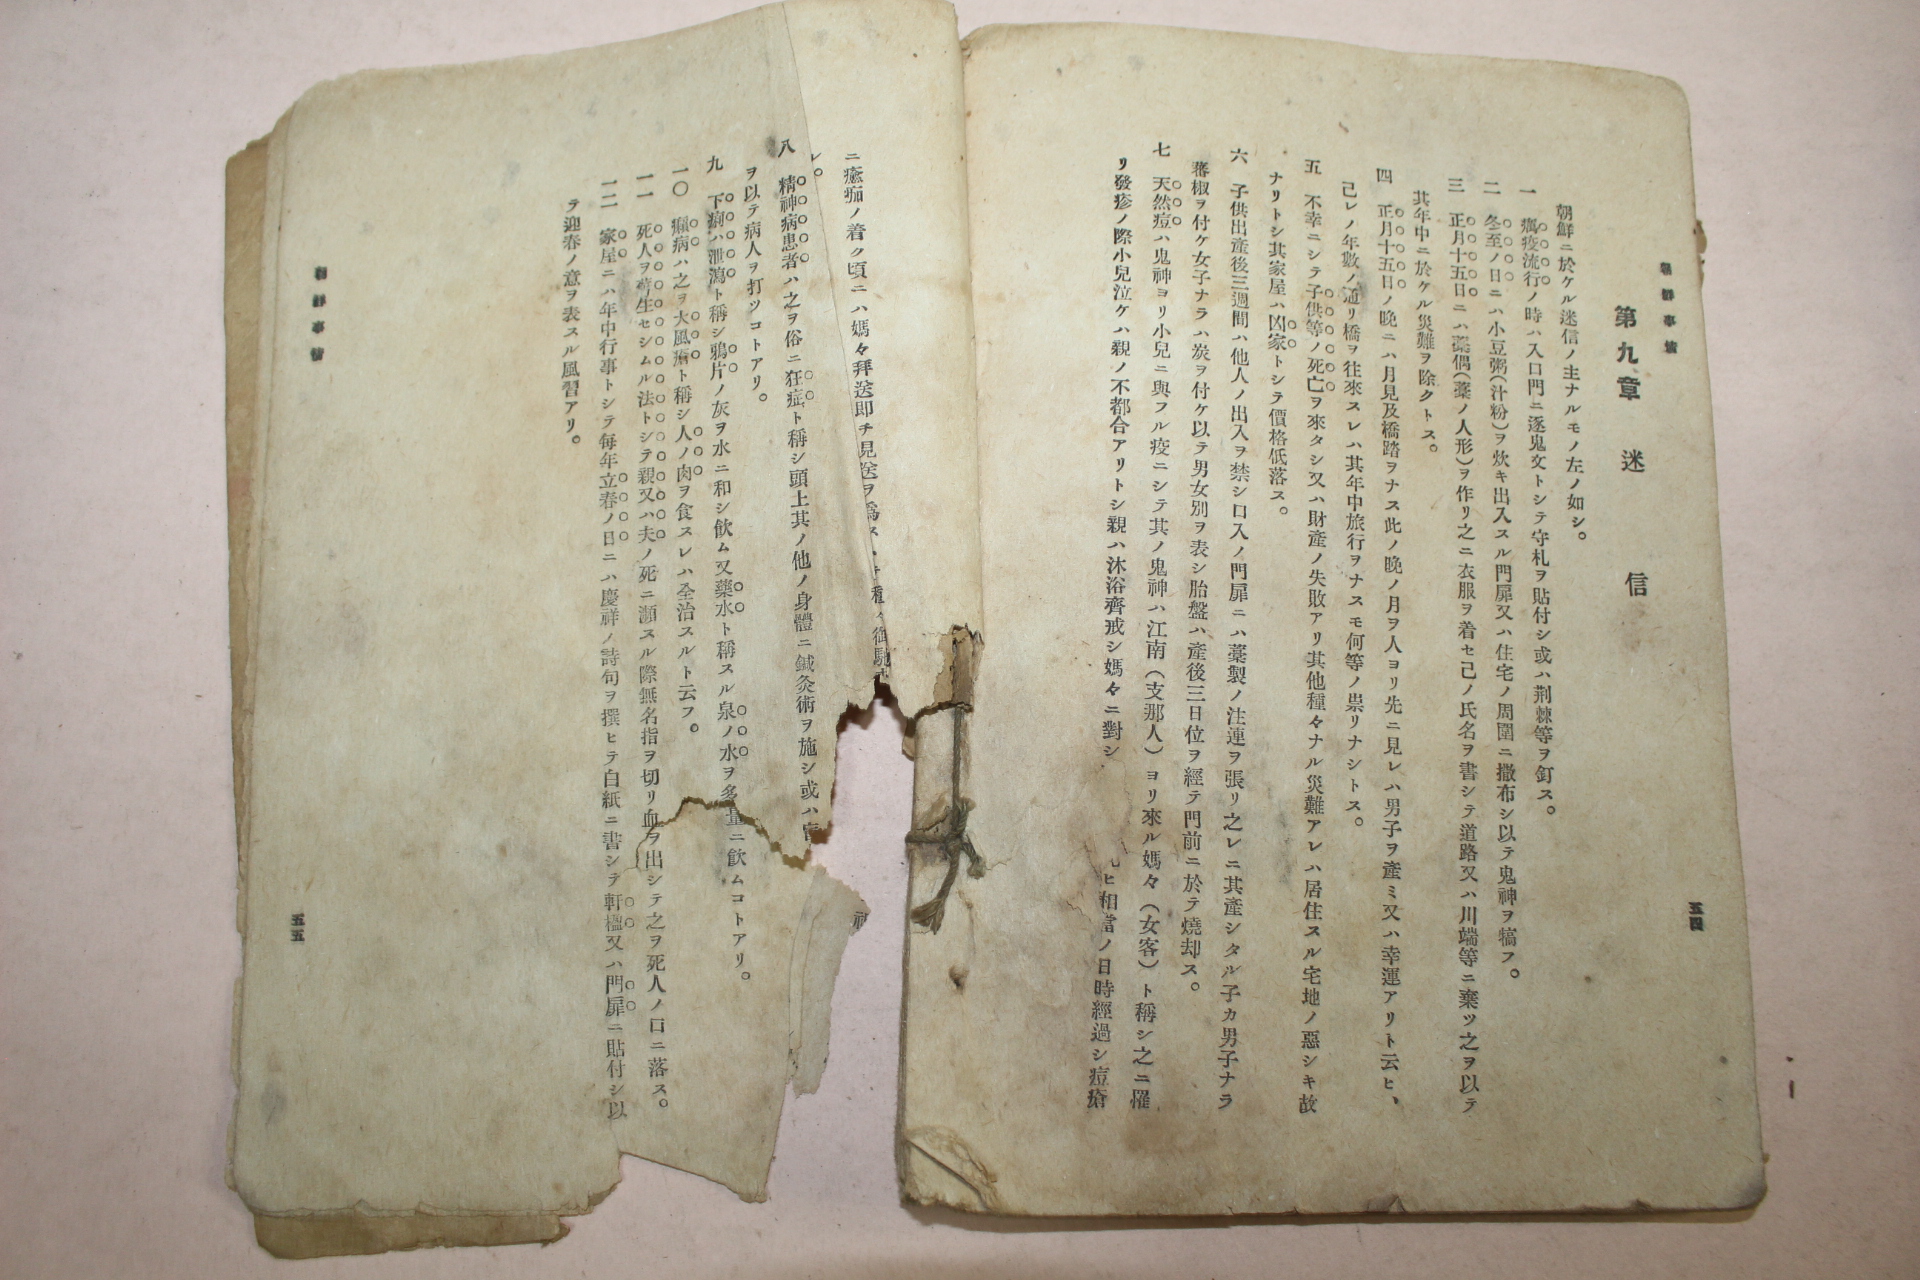 朝鮮事情
五四
第九章 迷信
朝鮮ニ於ケル迷信ノ主ナルモノ左ノ如シ。
一 癘疫流行ノ時ハ入口門ニ逐鬼文トシテ守札ヲ貼付シ或ハ荆棘等ヲ釘ス。
二 冬至ノ日ニハ小豆粥(汁粉)ヲ炊キ出入スル門扉又ハ住宅ノ周圍ニ撒布シ以テ鬼神ヲ犒フ。
三 正月十五日ニハ藁偶(藁ノ人形)ヲ作リ之ニ衣服ヲ着セ己ノ氏名ヲ書シテ道路又ハ川端等ニ棄ツ之ヲ以テ
其年中ニ於ケル災難ヲ除クトス。
四 正月十五日ノ晩ニハ月見及橋踏ヲナス此ノ晩ノ月ヲ人ヨリ先ニ見レハ男子ヲ產ミ又ハ幸運アリト云ヒ、
己レノ年數ノ通リ橋ヲ往來スレハ其年中旅行ヲナスモ何等ノ祟リナシトス。
五 不幸ニシテ子供等ノ死亡ヲ來タシ又ハ財產ノ失敗アリ其他種々ナル災難アレハ居住スル宅地ノ惡シキ故
ナリトシ其家屋ハ凶家トシテ價格低落ス。
六 子供出產後三週間ハ他人ノ出入ヲ禁シ口入ノ門扉ニハ藁製ノ注連ヲ張リ之レニ其產シタル子カ男子ナラ
蕃椒ヲ付ケ女子ナラハ炭ヲ付ケ以テ男女別ヲ表シ胎盤ハ產後三日位ヲ經テ門前ニ於テ燒却ス。
七 天然痘ハ鬼神ヨリ小兒ニ與フル疫ニシテ其ノ鬼神ハ江南(支那人)ヨリ來ル媽々(女客)ト稱シ之ニ罹
リ發疹ノ際小兒泣ケハ親ノ不都合アリトシ親ハ沐浴齊戒シ媽々ニ對シ ヒ相當ノ日時經過シ痘瘡
ニ瘡痂ノ着ク頃ニハ媽々拜送即チ見送ヲ爲ス 種々御馳
レ。
八 精神病患者ハ之ヲ俗ニ狂症ト稱シ頭上其ノ他ノ身體ニ鍼灸術ヲ施シ或ハ 神
ヲ以テ病人ヲ打ツコトアリ。
九 下痢ハ泄瀉ト稱シ鴉片ノ灰ヲ水ニ和シ飮ム又藥水ト稱スル泉ノ水ヲ多量ニ飮ムコトアリ。
一〇 癩病ハ之ヲ大風瘡ト稱シ人ノ肉ヲ食スレハ全治スルト云フ。
一一 死人ヲ蘇生セシムル法トシテ親又ハ夫ノ死ニ瀕スル際無名指ヲ切リ血ヲ出シテ之ヲ死人ノ口ニ落ス。
一二 家屋ニハ年中行事トシテ毎年立春ノ日ニハ慶祥ノ詩句ヲ撰ヒテ白紙ニ書シテ軒楹又ハ門扉ニ貼付シ以
テ迎春ノ意ヲ表スル風習アリ。
朝鮮事情
五五